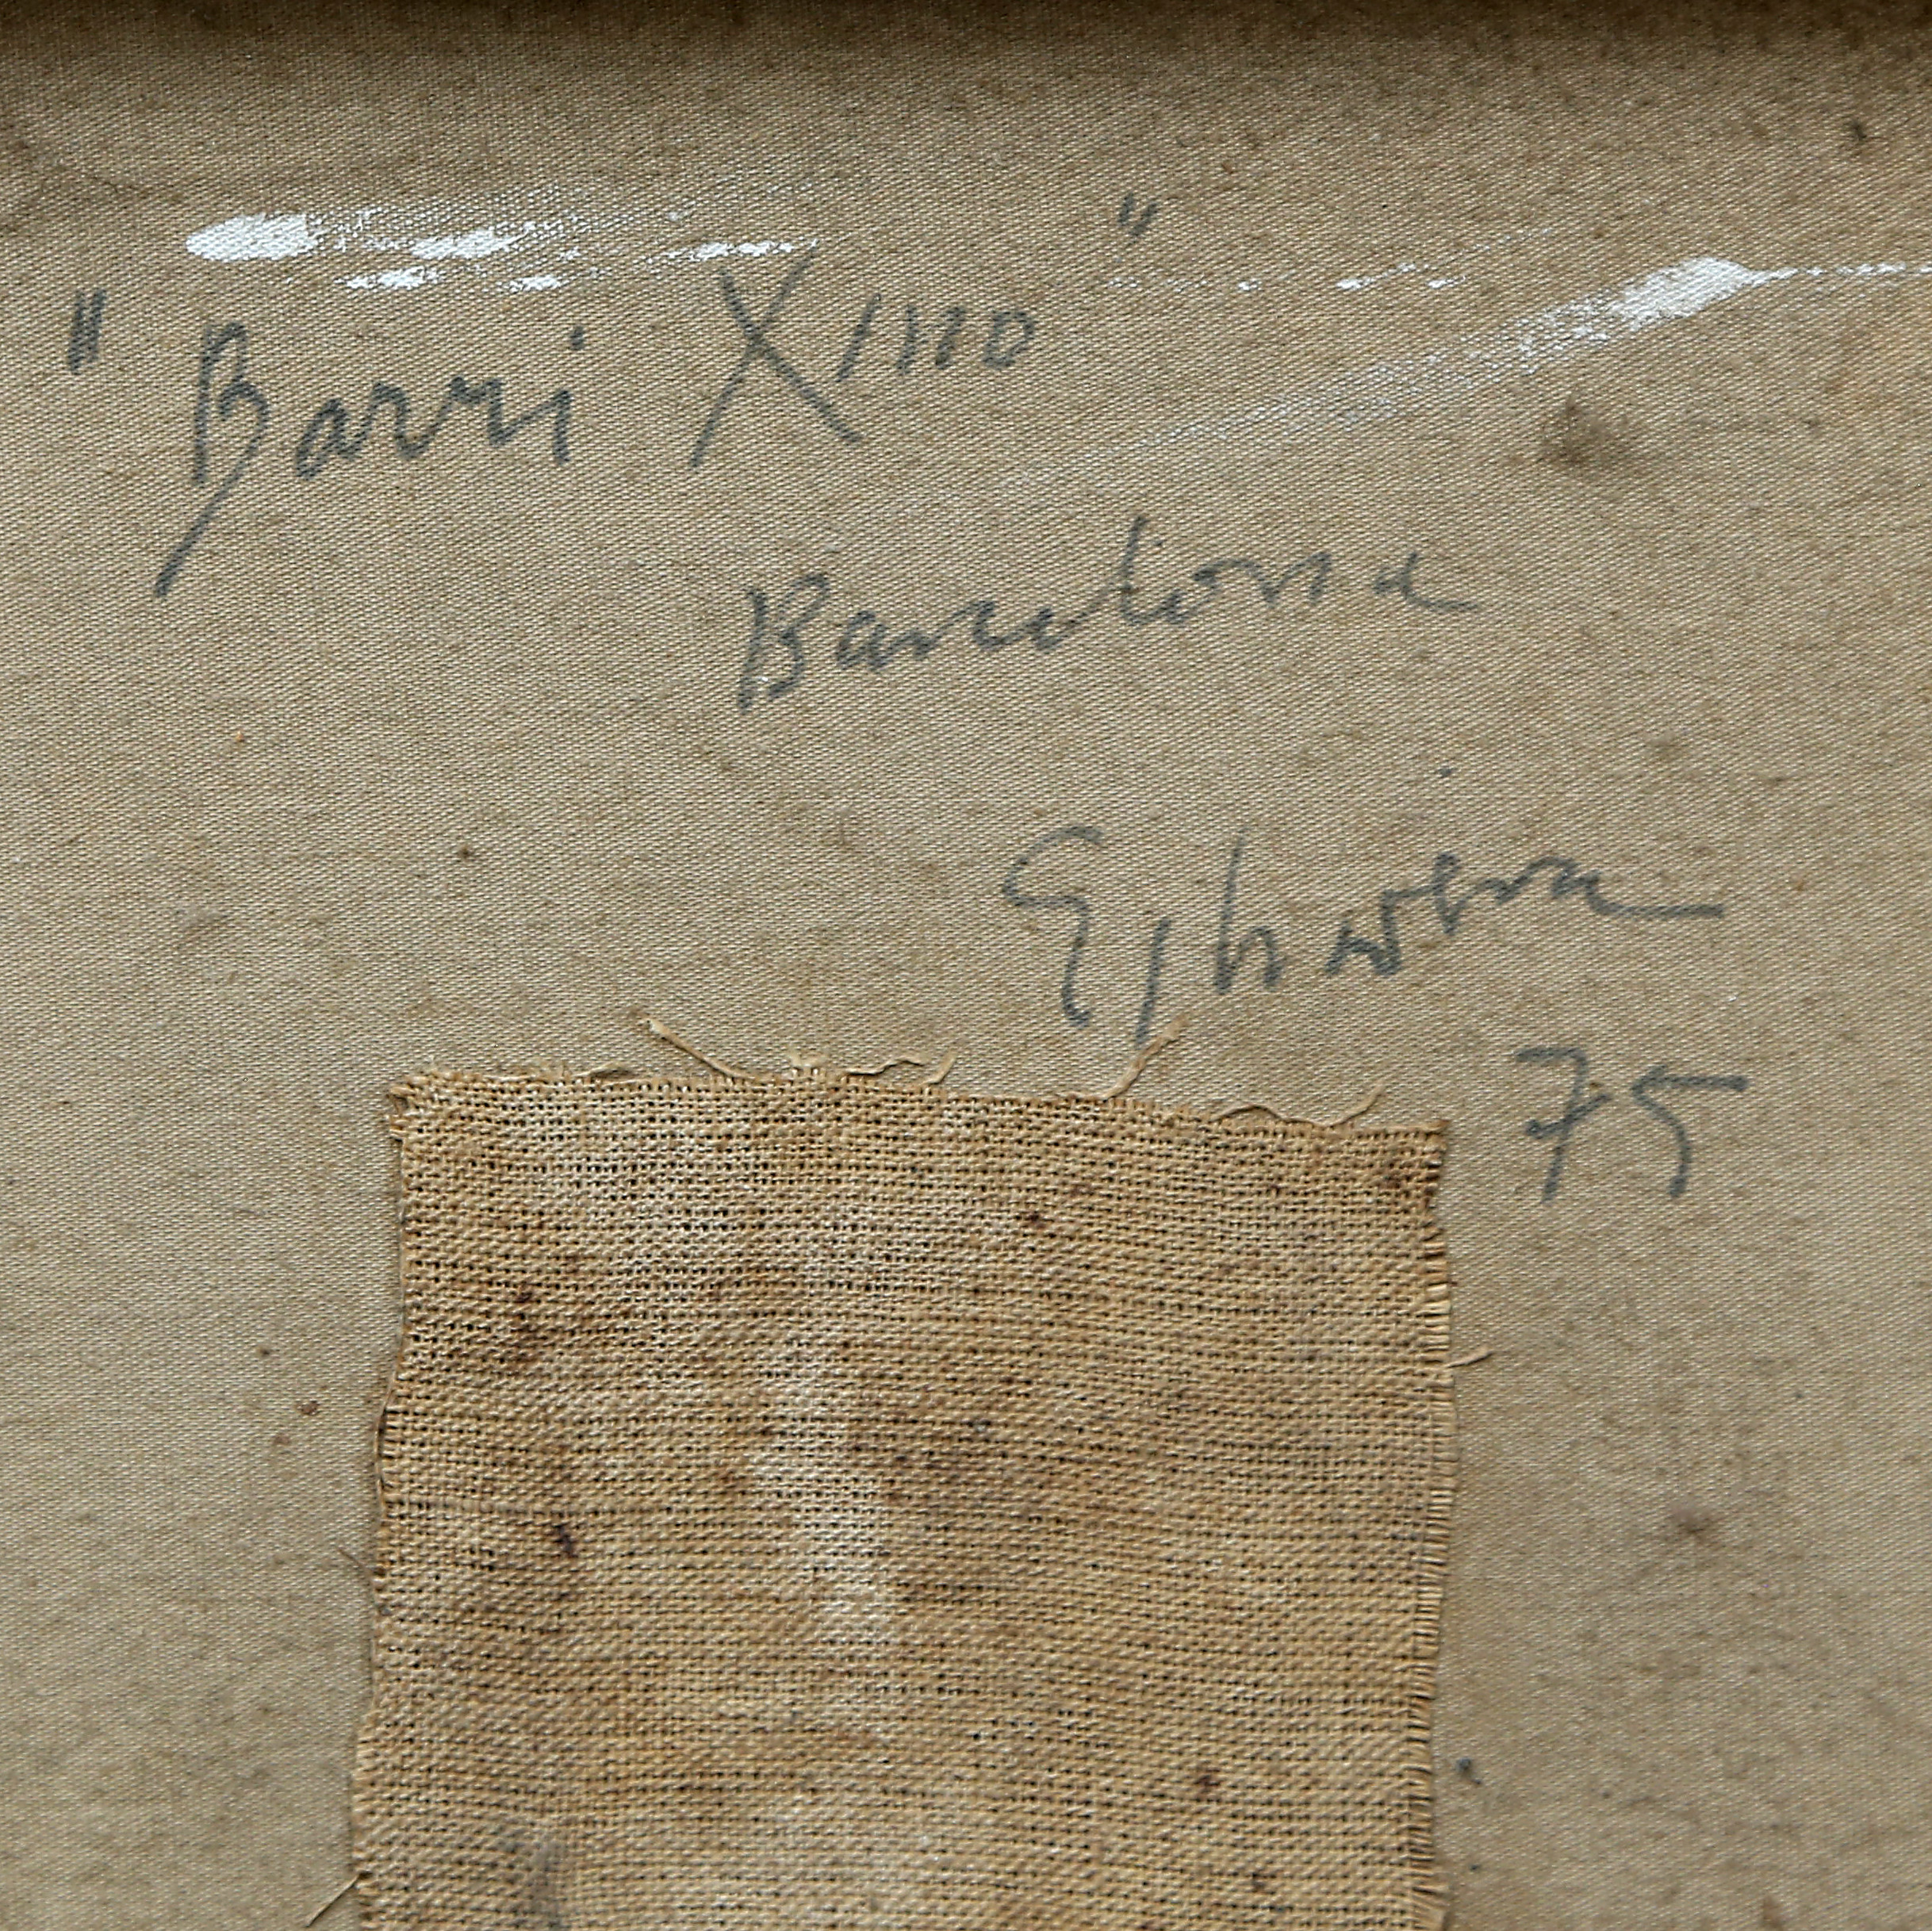 "Barri Xino"
Barcelona
75